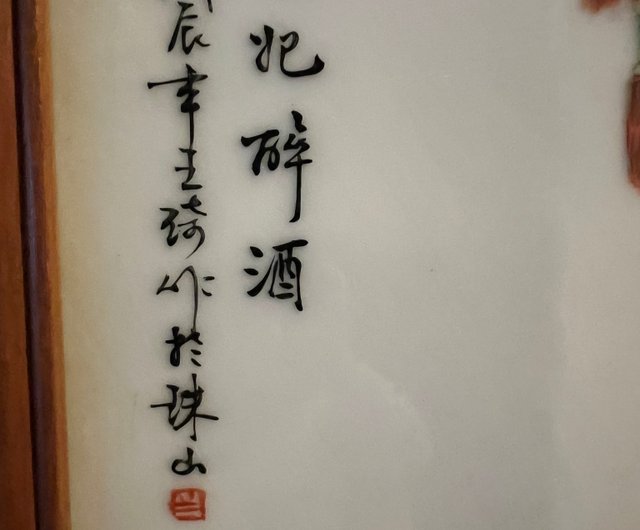 妃醉酒
辰年王琦作於珠山